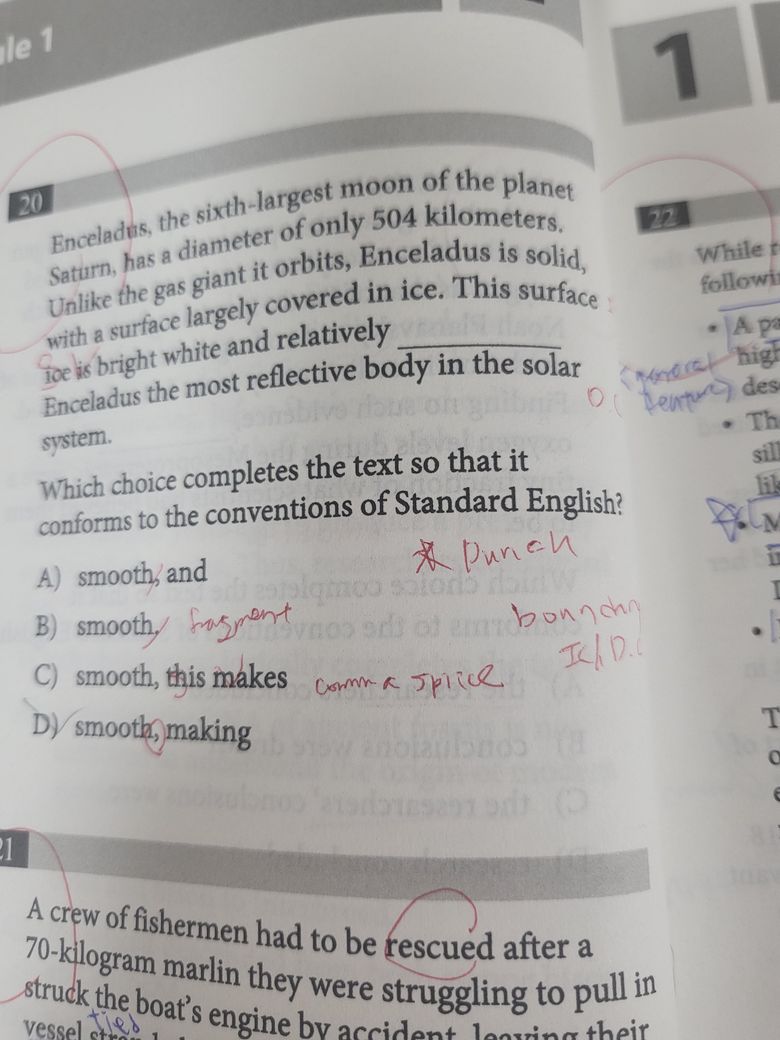 ule 1
1
20
Enceladus, the sixth-largest moon of the planet
Saturn, has a diameter of only 504 kilometers.
Unlike the gas giant it orbits, Enceladus is solid,
with a surface largely covered in ice. This surface
ice is bright white and relatively ____________
Enceladus the most reflective body in the solar
system.
Which choice completes the text so that it
conforms to the conventions of Standard English?
A) smooth, and
B) smooth, fragment
C) smooth, this makes comma splice
D) smooth, making
21
A crew of fishermen had to be rescued after a
70-kilogram marlin they were struggling to pull in
struck the boat's engine by accident, leaving their
vessel
22
While
followi
• A pa
high
des
• Th
sill
lik